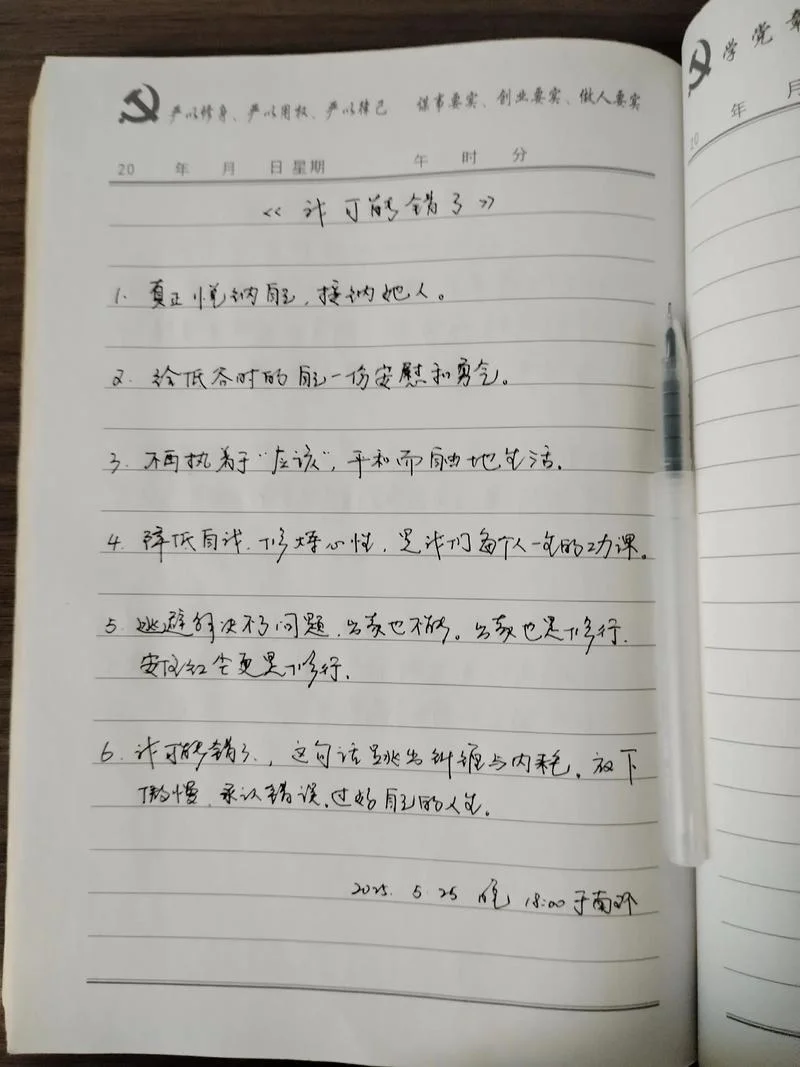 严以修身、严以用权、严以律己 谋事要实、创业要实、做人要实
20 年 月 日 星期 午 时 分
《我可能错了》
1. 真正悦纳自己，接纳她人。
2. 给低谷时的自己一份安慰和勇气。
3. 不再执着于“应该”，平和而自由地生活。
4. 降低自我，修炼心性，是我们每个人一生的功课。
5. 逃避解决不了问题，出家也不能。出家也是修行，
安住红尘更是修行。
6. 我可能错了，这句话跳出纠缠与内耗，放下
傲慢，承认错误，过好自己的人生。
2025. 5. 25 晚 18:00 于南环
学党章
20 年 月